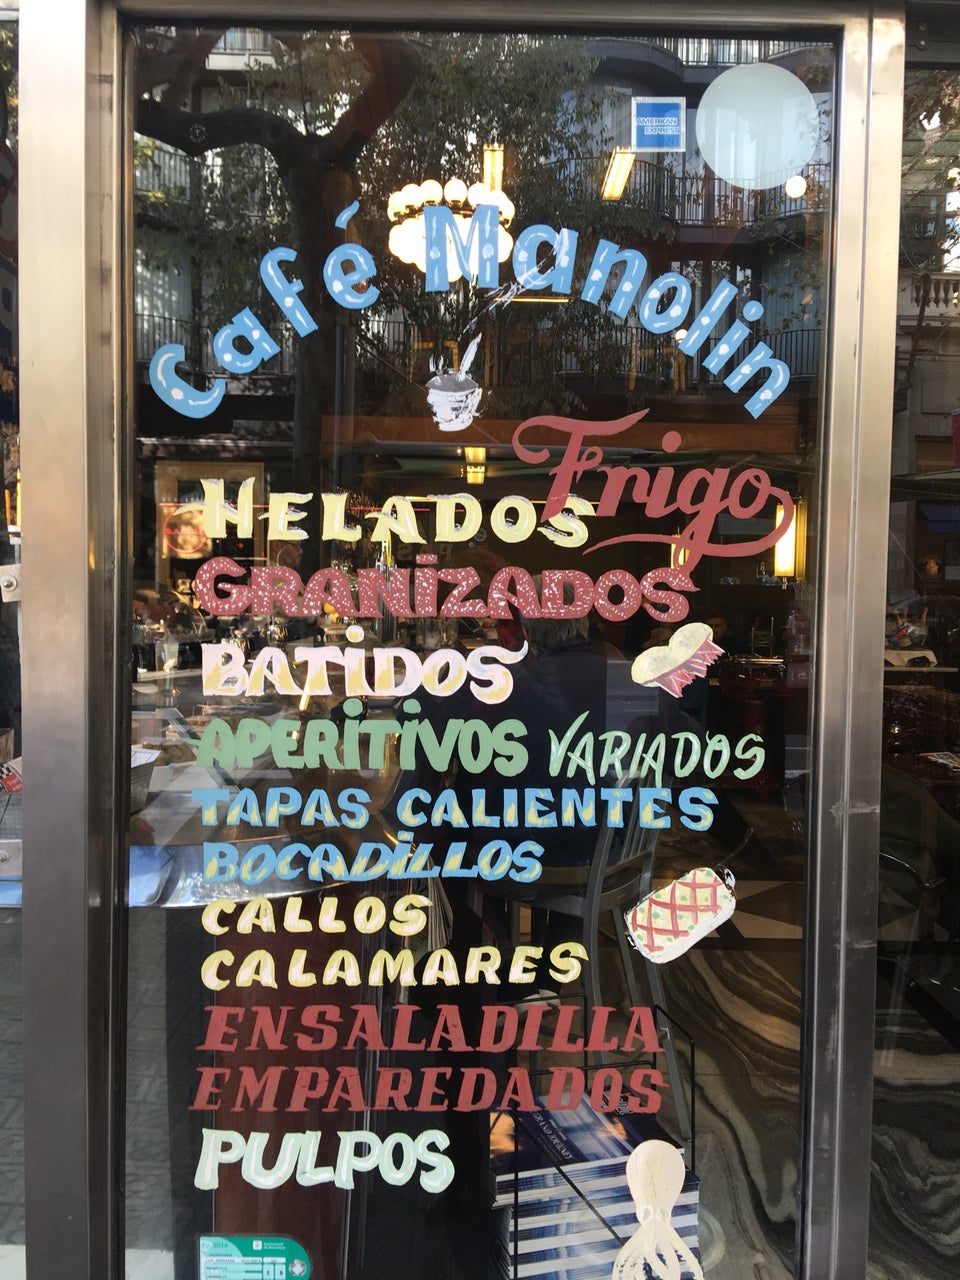 AMERICAN
EXPRESS
Café Manolin
Frigo
HELADOS
GRANIZADOS
BATIDOS
APERITIVOS VARIADOS
TAPAS CALIENTES
BOCADILLOS
CALLOS
CALAMARES
ENSALADILLA
EMPAREDADOS
PULPOS